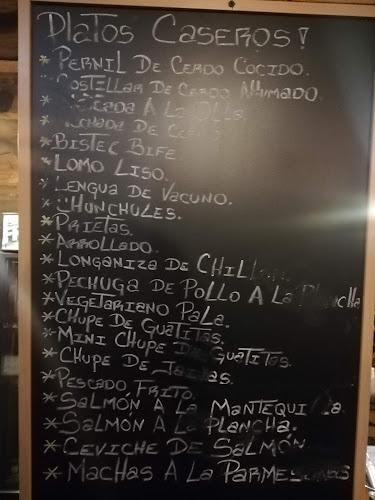 Platos Caseros!
* Pernil De Cerdo Cocido.
* Costillar De Cerdo Ahumado.
* A La Olla.
* De
* Bistec Bife
* Lomo Liso.
* Lengua De Vacuno.
* Chunchules.
* Prietas.
* Arrollado.
* Longaniza De Chillan
* Pechuga De Pollo A La Plancha
* Vegetariano Pala.
* Chupe De Guatitas.
* Mini Chupe De Guatitas.
* Chupe De Jaibas.
* Pescado Frito.
* Salmón A La Mantequilla.
* Salmón A La Plancha.
* Ceviche De Salmón
* Machas A La Parmesana